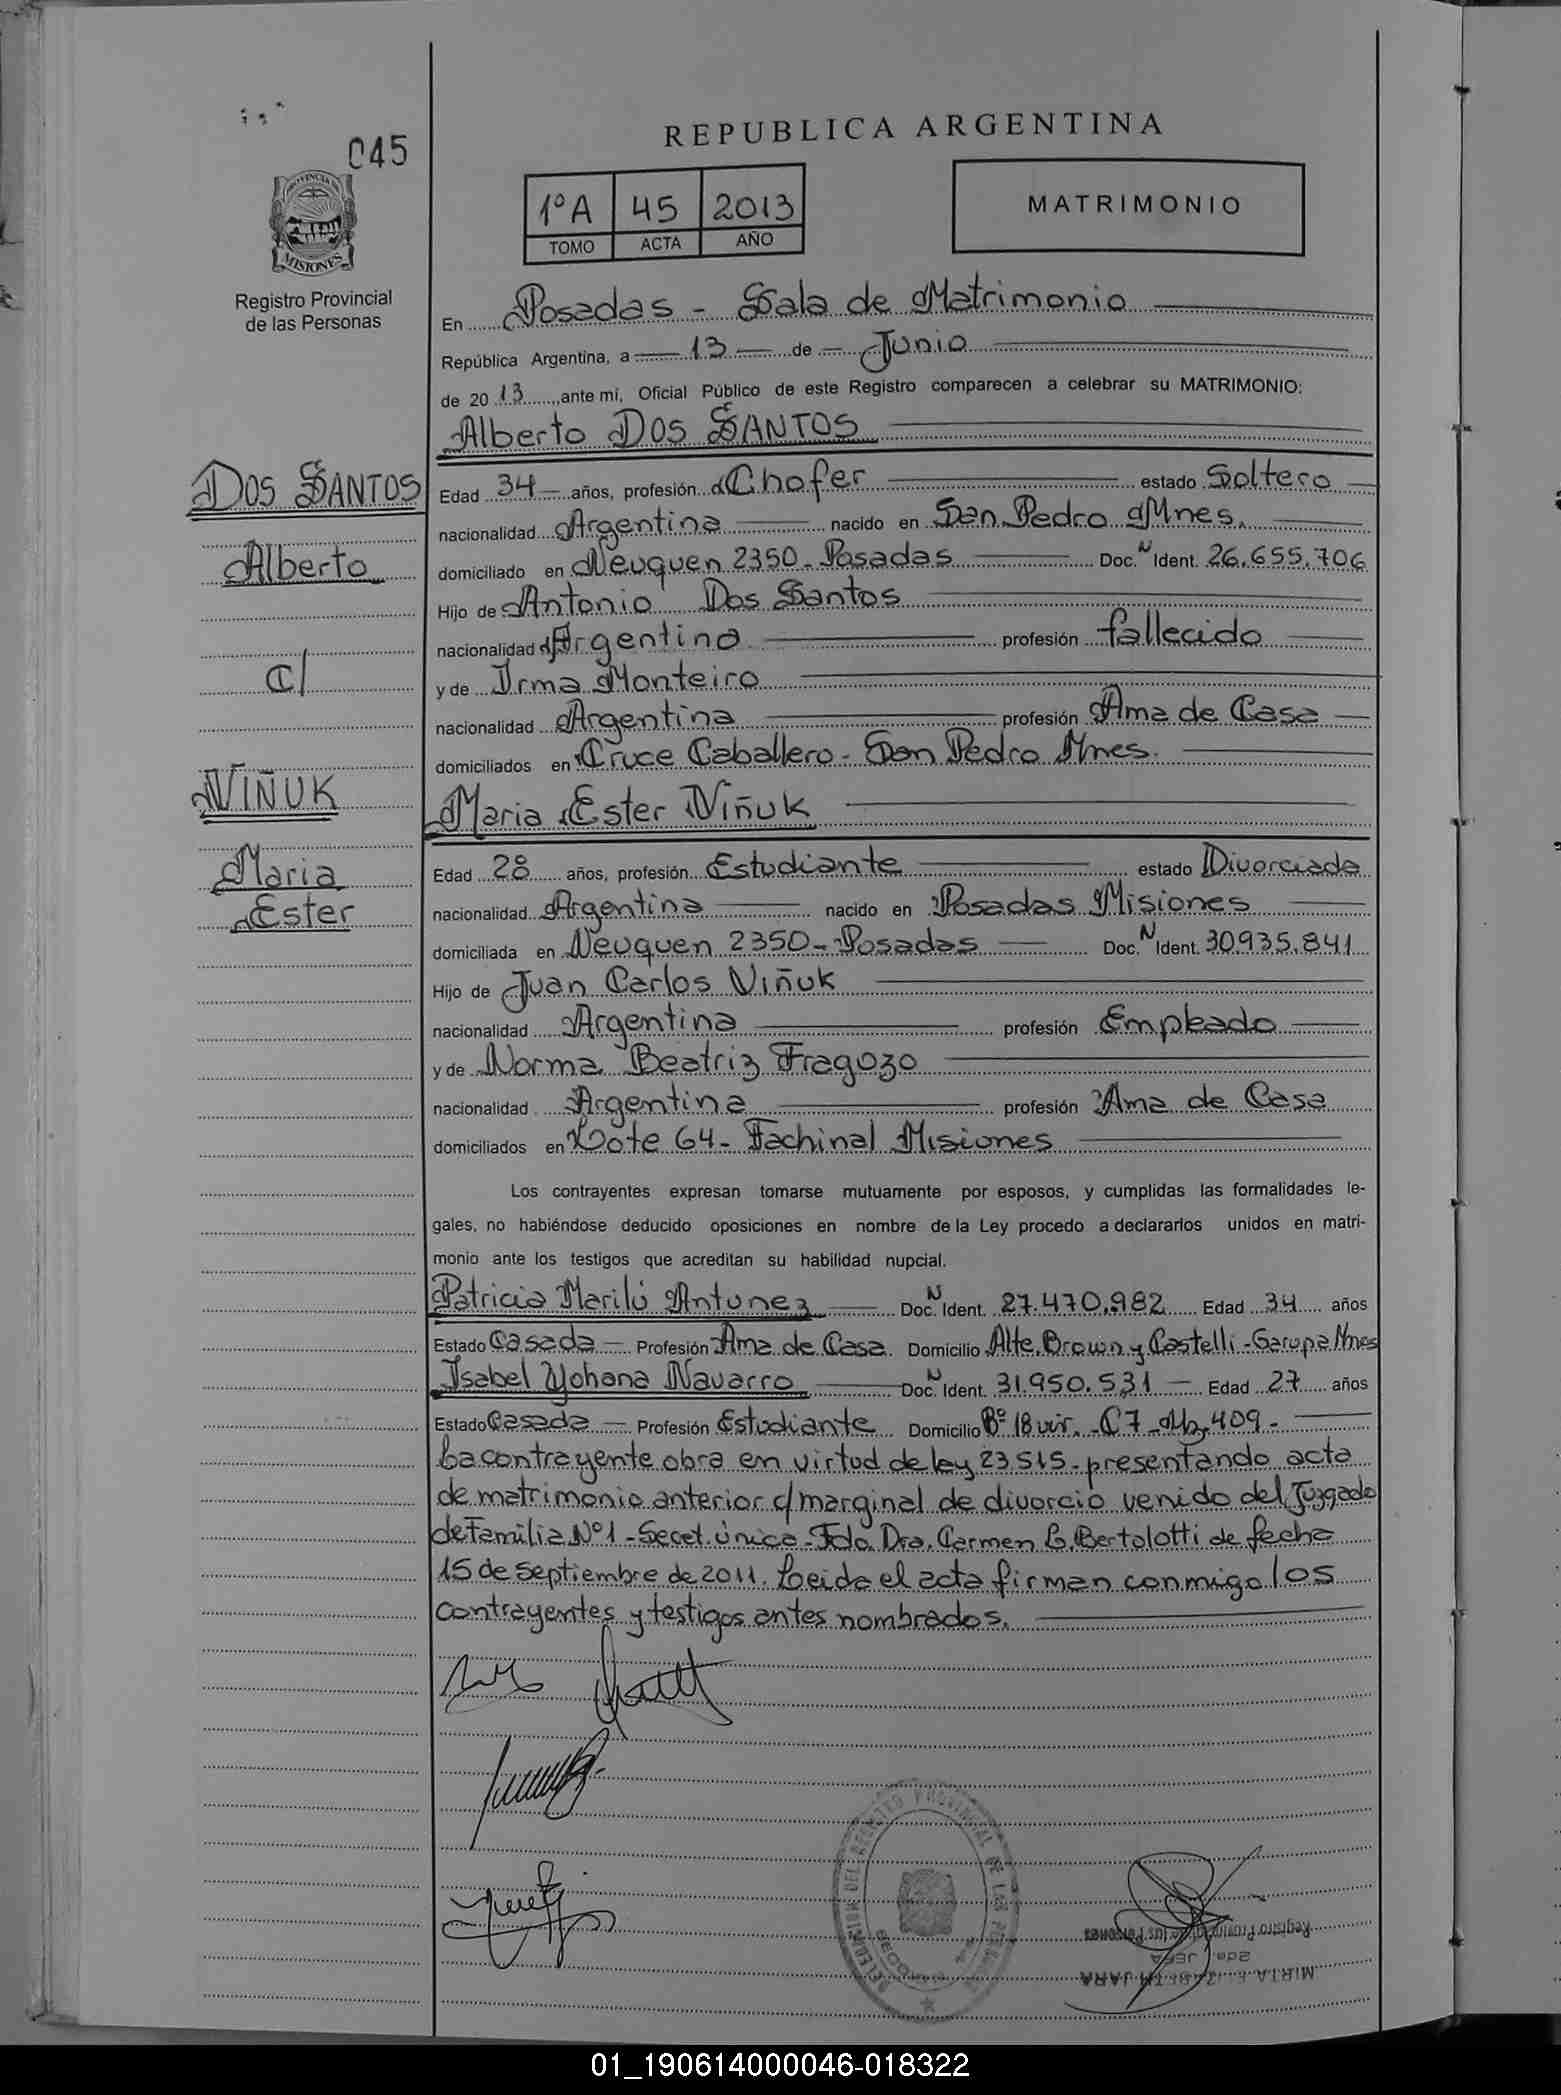 REPUBLICA ARGENTINA
045
1º A 45 2013
TOMO ACTA AÑO
MATRIMONIO
PROVINCIA DE
MISIONES
Registro Provincial
de las Personas
En Posadas - Sala de Matrimonio
República Argentina, a 13 de Junio
de 2013, ante mí, Oficial Público de este Registro comparecen a celebrar su MATRIMONIO:
Alberto DOS SANTOS
DOS SANTOS
Alberto
C/
VIÑUK
Maria
Ester
Edad 34 años, profesión Chofer estado Soltero
nacionalidad Argentina nacido en San Pedro Mnes.
domiciliado en Neuquen 2350 - Posadas Doc. N Ident. 26.655.706
Hijo de Antonio Dos Santos
nacionalidad Argentina profesión fallecido
y de Irma Monteiro
nacionalidad Argentina profesión Ama de Casa
domiciliados en Cruce Caballero - San Pedro Mnes.
Maria Ester Viñuk
Edad 28 años, profesión Estudiante estado Divorciada
nacionalidad Argentina nacido en Posadas Misiones
domiciliada en Neuquen 2350 - Posadas Doc. N Ident. 30935.841
Hijo de Juan Carlos Viñuk
nacionalidad Argentina profesión Empleado
y de Norma Beatriz Fragozo
nacionalidad Argentina profesión Ama de Casa
domiciliados en Lote 64 - Fachinal Misiones
Los contrayentes expresan tomarse mutuamente por esposos, y cumplidas las formalidades le-
gales, no habiéndose deducido oposiciones en nombre de la Ley procedo a declararlos unidos en matri-
monio ante los testigos que acreditan su habilidad nupcial.
Patricia Marilú Antunez Doc. N Ident. 27.470.982 Edad 34 años
Estado Casada Profesión Ama de Casa Domicilio Alte. Brown y Castelli - Garupa Mnes
Isabel Yohana Navarro Doc. N Ident. 31.950.531 Edad 27 años
Estado Casada Profesión Estudiante Domicilio Bº 18 viv. - C7 - Mz 409 -
La contrayente obra en virtud de ley 23.515 - presentando acta
de matrimonio anterior c/ marginal de divorcio venido del Juzgado
de Familia Nº1 - Secet. Única - Fdo. Dra. Carmen L. Bertolotti de fecha
15 de septiembre de 2011. Leida el acta firman conmigo los
contrayentes y testigos antes nombrados.
DELEGACION DEL REGISTRO PROVINCIAL DE LAS PERSONAS
MIRTA JARA
2da. JEFA
Registro Provincial de las Personas
01_190614000046-018322